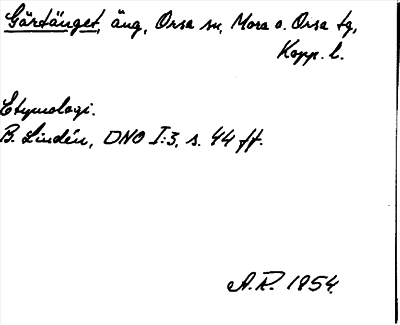 Gärdänget, äng, Orsa sn, Mora o. Orsa tg,
Kopp. l.
Etymologi.
B. Lindén, DNO I:3, s. 44 ff.
A.R. 1854.